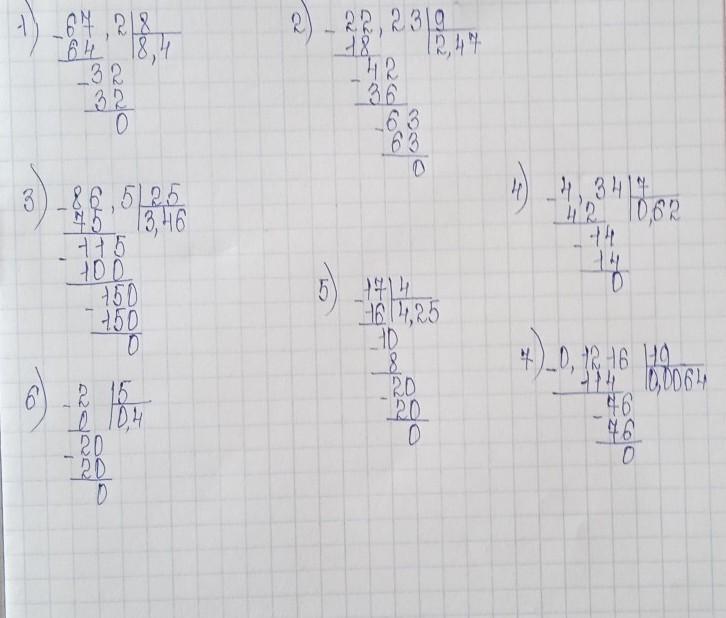 1) -67,2 | 8
64 | 8,4
-32
32
0
2) -22,23 | 9
18 | 2,47
-42
36
-63
63
0
3) -86,5 | 25
75 | 3,46
-115
100
-150
150
0
4) -4,34 | 7
42 | 0,62
-14
14
0
5) -17 | 4
16 | 4,25
-10
8
-20
20
0
6) -2 | 5
0 | 0,4
-20
20
0
7) -0,1216 | 19
114 | 0,0064
-76
76
0